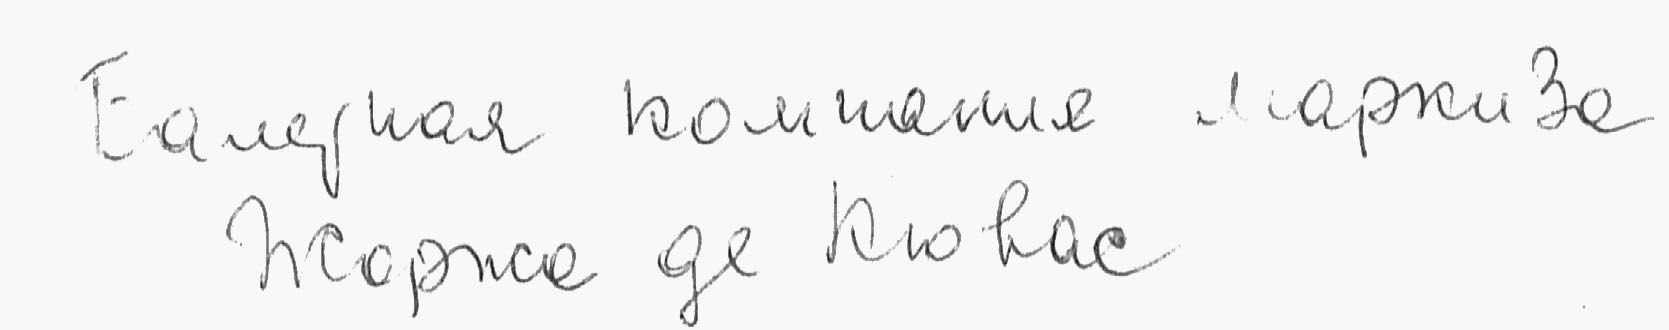 Балетная компания маркиза
Жоржа де Кювас